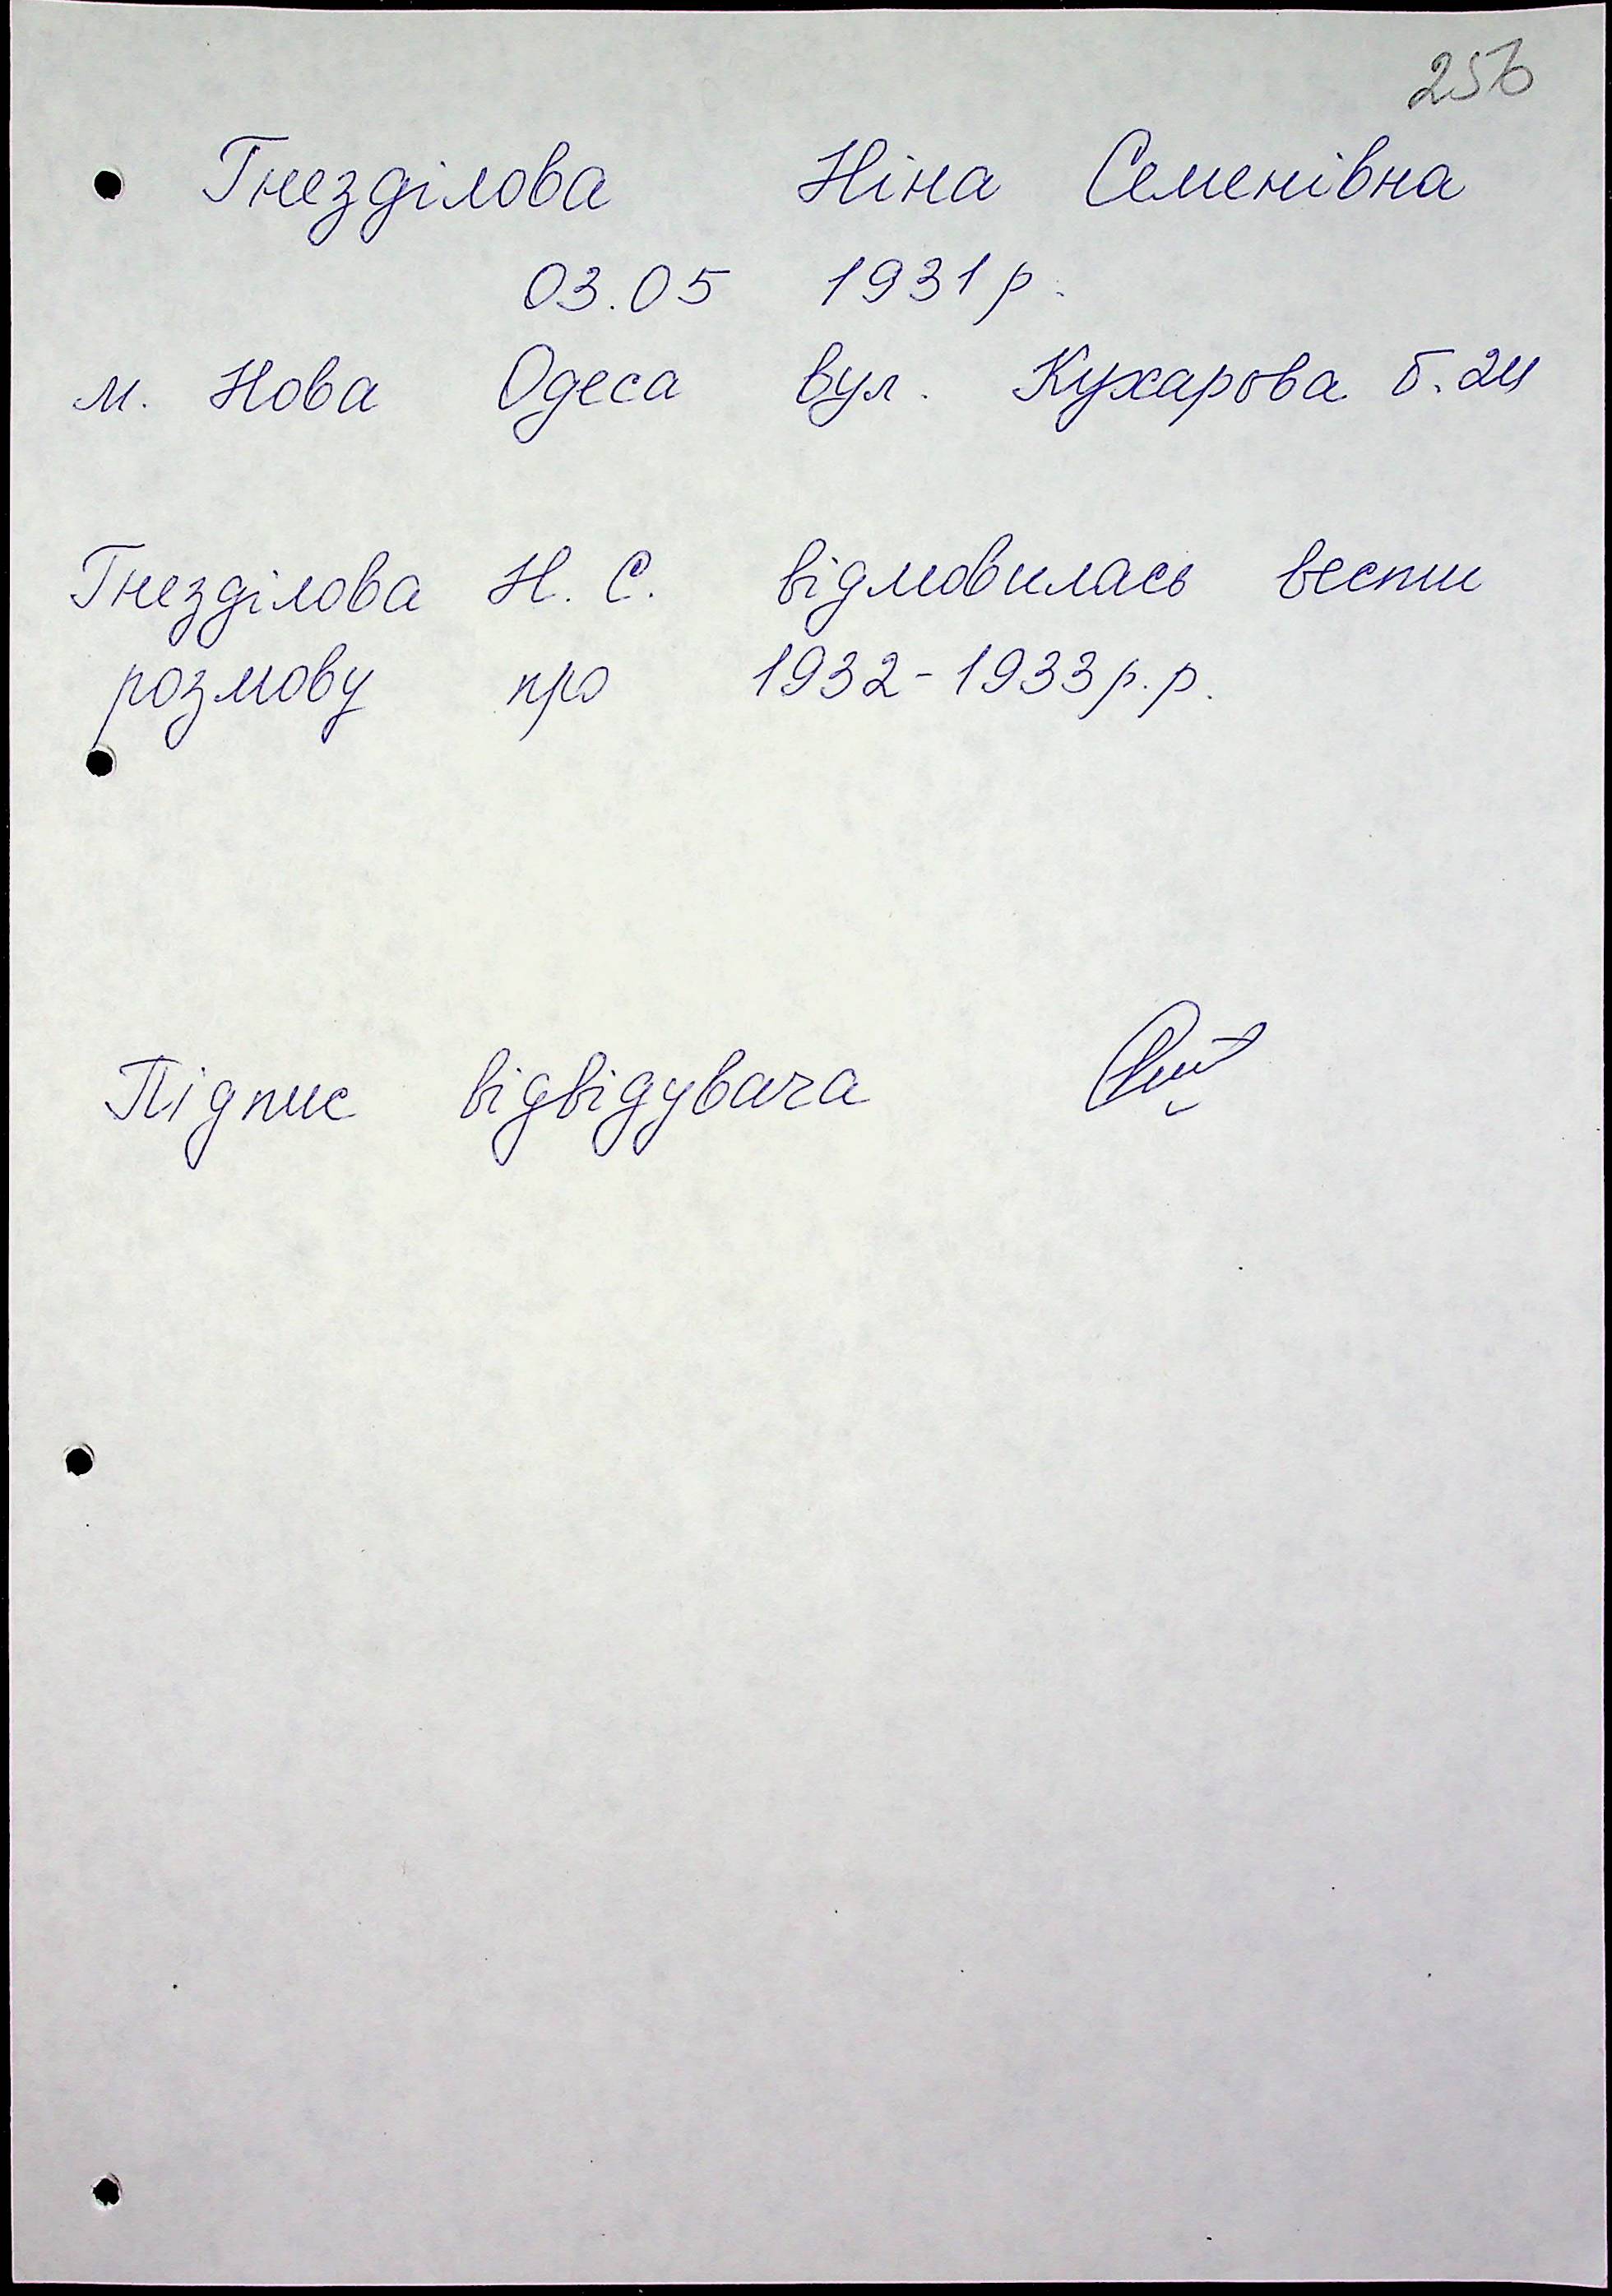 256
Гнезділова Ніна Семенівна
03.05 1931 р.
м. Нова Одеса вул. Кухарова б. 24
Гнезділова Н. С. відмовилась вести
розмову про 1932-1933 р.р.
Підпис відвідувача